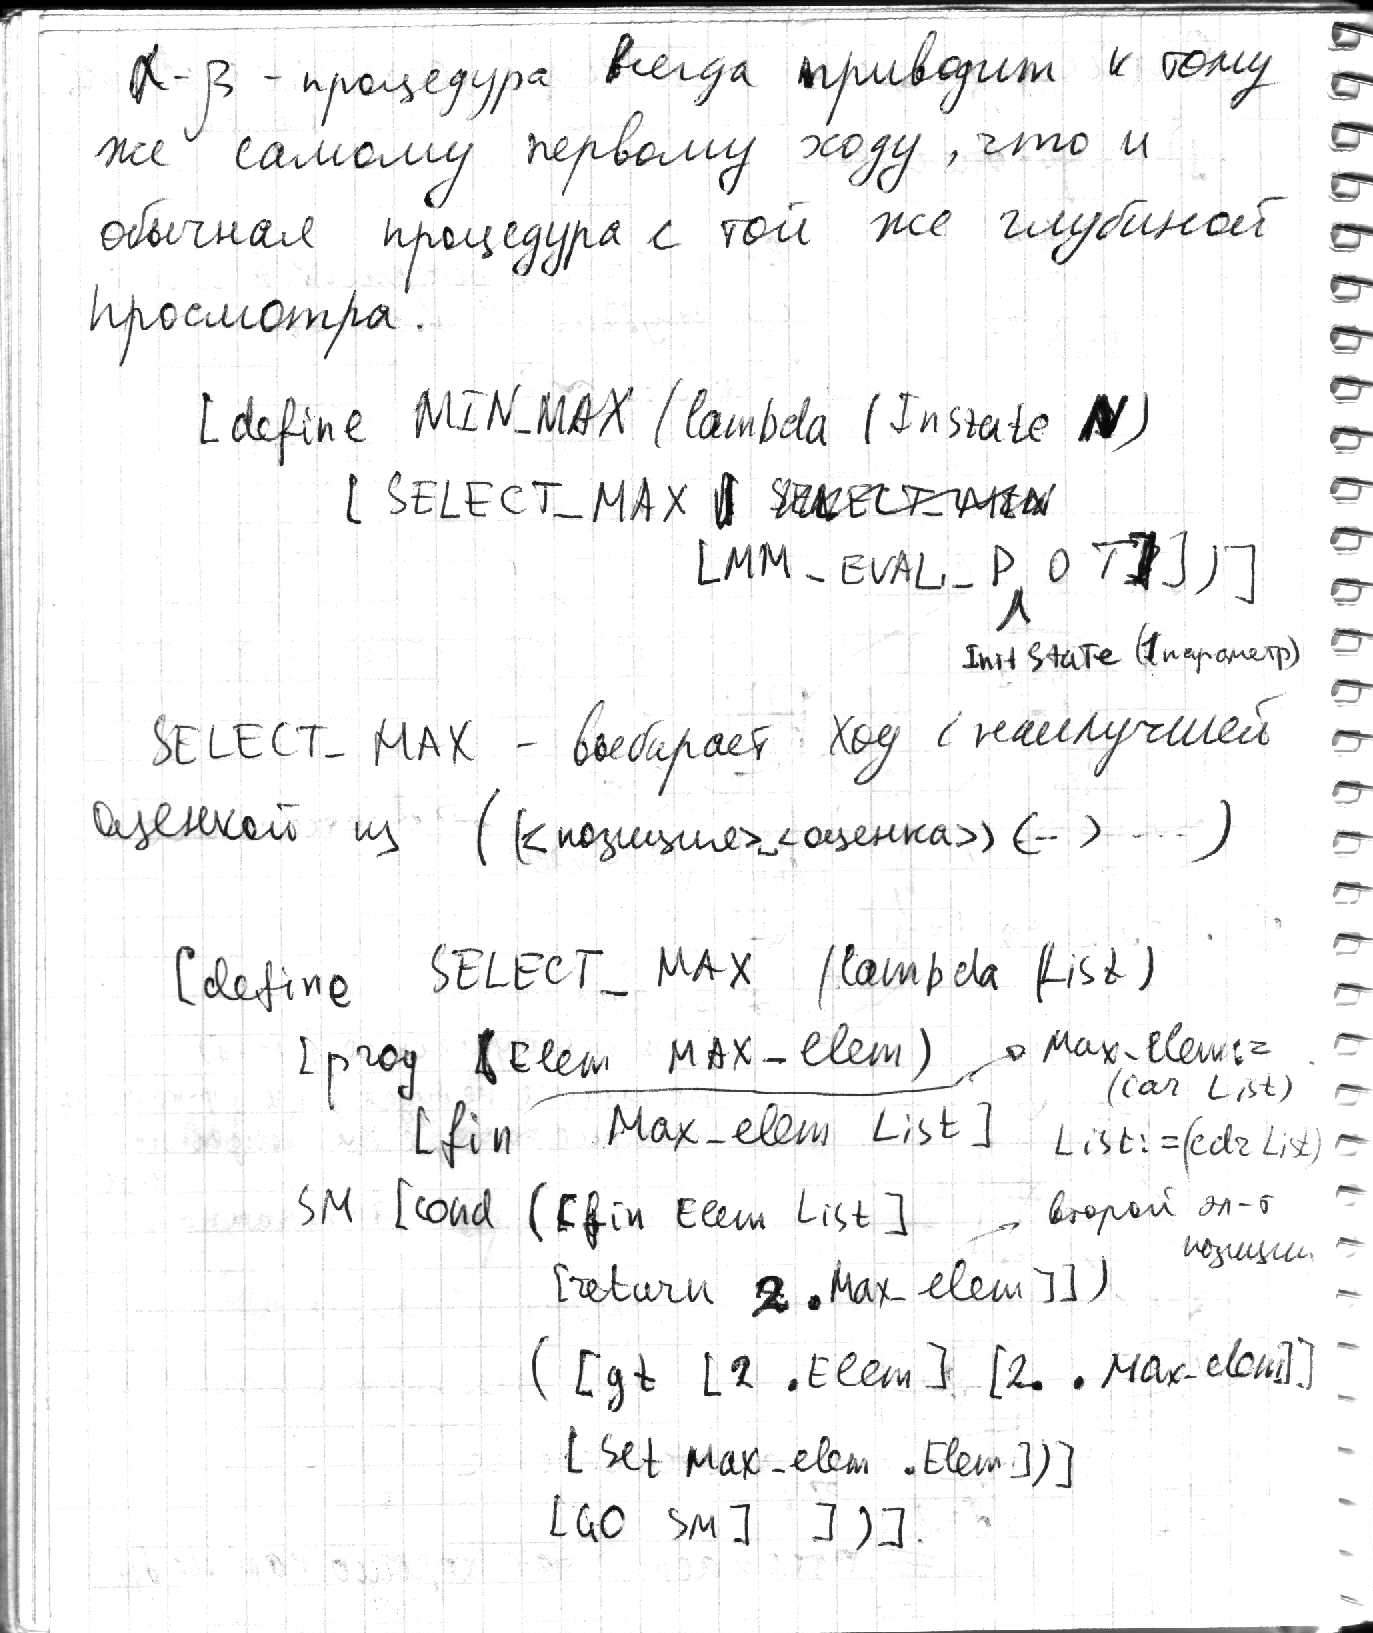 α-β - процедура всегда приводит к тому
же самому первому ходу, что и
обычная процедура с той же глубиной
просмотра.
[define MIN_MAX (lambda (Instate N)
[SELECT_MAX SELECT_MIN
[MM_EVAL_P O T]])]
InitState (1 параметр)
SELECT_MAX - выбирает ход с наилучшей
оценкой из ((<позиция>_<оценка>) (-- ) ....)
[define SELECT_MAX (lambda (List)
[prog (Elem MAX_elem) Max_elem:=
(car List)
[fin Max_elem List] List:=(cdr List)
SM [cond ([fin Elem List] → второй эл-т
позиции
[return 2 .Max_elem]])
([gt [2 .Elem] [2. .Max_elem]]
[set Max_elem .Elem])]
[GO SM] ])].